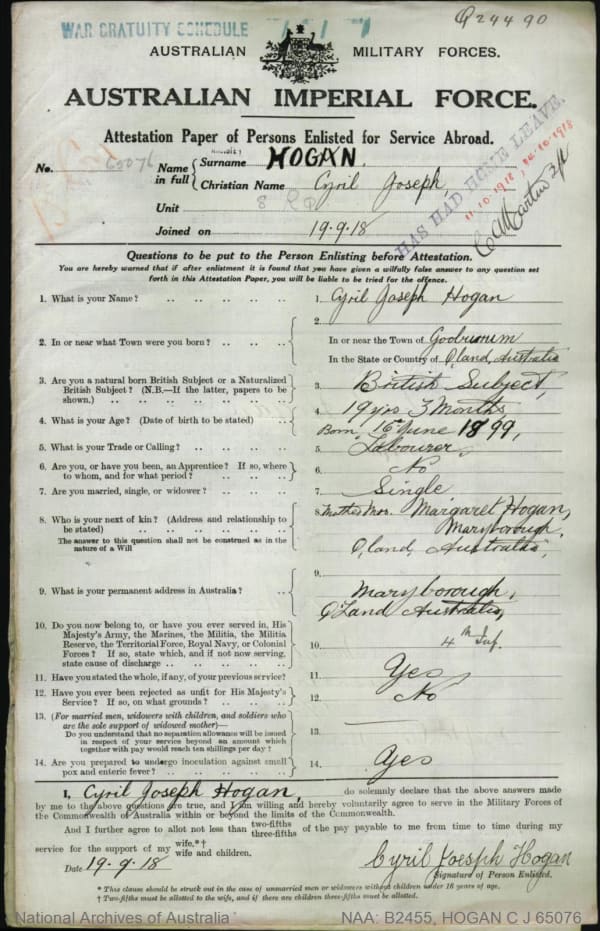 Q24490
WAR GRATUITY SCHEDULE
AUSTRALIAN MILITARY FORCES.
AUSTRALIAN IMPERIAL FORCE.
Attestation Paper of Persons Enlisted for Service Abroad.
HAS HAD HOME LEAVE.
No. 65076
Name in full
Surname HOGAN.
Christian Name Cyril Joseph,
Unit
Joined on 19.9.18
Questions to be put to the Person Enlisting before Attestation.
You are hereby warned that if after enlistment it is found that you have given a wilfully false answer to any question set
forth in this Attestation Paper, you will be liable to be tried for the offence.
1. What is your Name? .. .. .. .. .. 1. Cyril Joseph Hogan
2. In or near what Town were you born? .. .. .. 2. In or near the Town of
In the State or Country of Q,land, Australia
3. Are you a natural born British Subject or a Naturalized
British Subject? (N.B.—If the latter, papers to be
shown.) .. .. .. .. .. .. 3. British Subject,
4. What is your Age? (Date of birth to be stated) .. .. 4. 19 yrs 3 Months,
Born, 16th June 1899,
5. What is your Trade or Calling? .. .. .. .. 5. Labourer,
6. Are you, or have you been, an Apprentice? If so, where
to whom, and for what period? .. .. .. .. 6. No
7. Are you married, single, or widower? .. .. .. 7. Single
8. Who is your next of kin? (Address and relationship to
be stated) .. .. .. .. .. ..
The answer to this question shall not be construed as in the
nature of a Will
8. Mother Mrs. Margaret Hogan,
Maryborough,
Q,land, Australia,
9. What is your permanent address in Australia? .. .. 9. Maryborough,
Q'Land Australia,
10. Do you now belong to, or have you ever served in, His
Majesty's Army, the Marines, the Militia, the Militia
Reserve, the Territorial Force, Royal Navy, or Colonial
Forces? If so, state which, and if not now serving,
state cause of discharge .. .. .. .. 10. 4th Inf.
11. Have you stated the whole, if any, of your previous service? 11. Yes
12. Have you ever been rejected as unfit for His Majesty's
Service? If so, on what grounds? .. .. .. 12. No
13. (For married men, widowers with children, and soldiers who
are the sole support of widowed mother)—
Do you understand that no separation allowance will be issued
in respect of your service beyond an amount which
together with pay would reach ten shillings per day? 13.
14. Are you prepared to undergo inoculation against small
pox and enteric fever? .. .. .. .. .. 14. Yes
I, Cyril Joseph Hogan, do solemnly declare that the above answers made
by me to the above questions are true, and I am willing and hereby voluntarily agree to serve in the Military Forces of
the Commonwealth of Australia within or beyond the limits of the Commonwealth.
And I further agree to allot not less than two-fifths three-fifths of the pay payable to me from time to time during my
service for the support of my wife,*† wife and children.
Date 19.9.18
Cyril Joesph Hogan
Signature of Person Enlisted.
* This clause should be struck out in the case of unmarried men or widowers without children under 16 years of age.
† Two-fifths must be allotted to the wife, and if there are children three-fifths must be allotted.
National Archives of Australia
NAA: B2455, HOGAN C J 65076